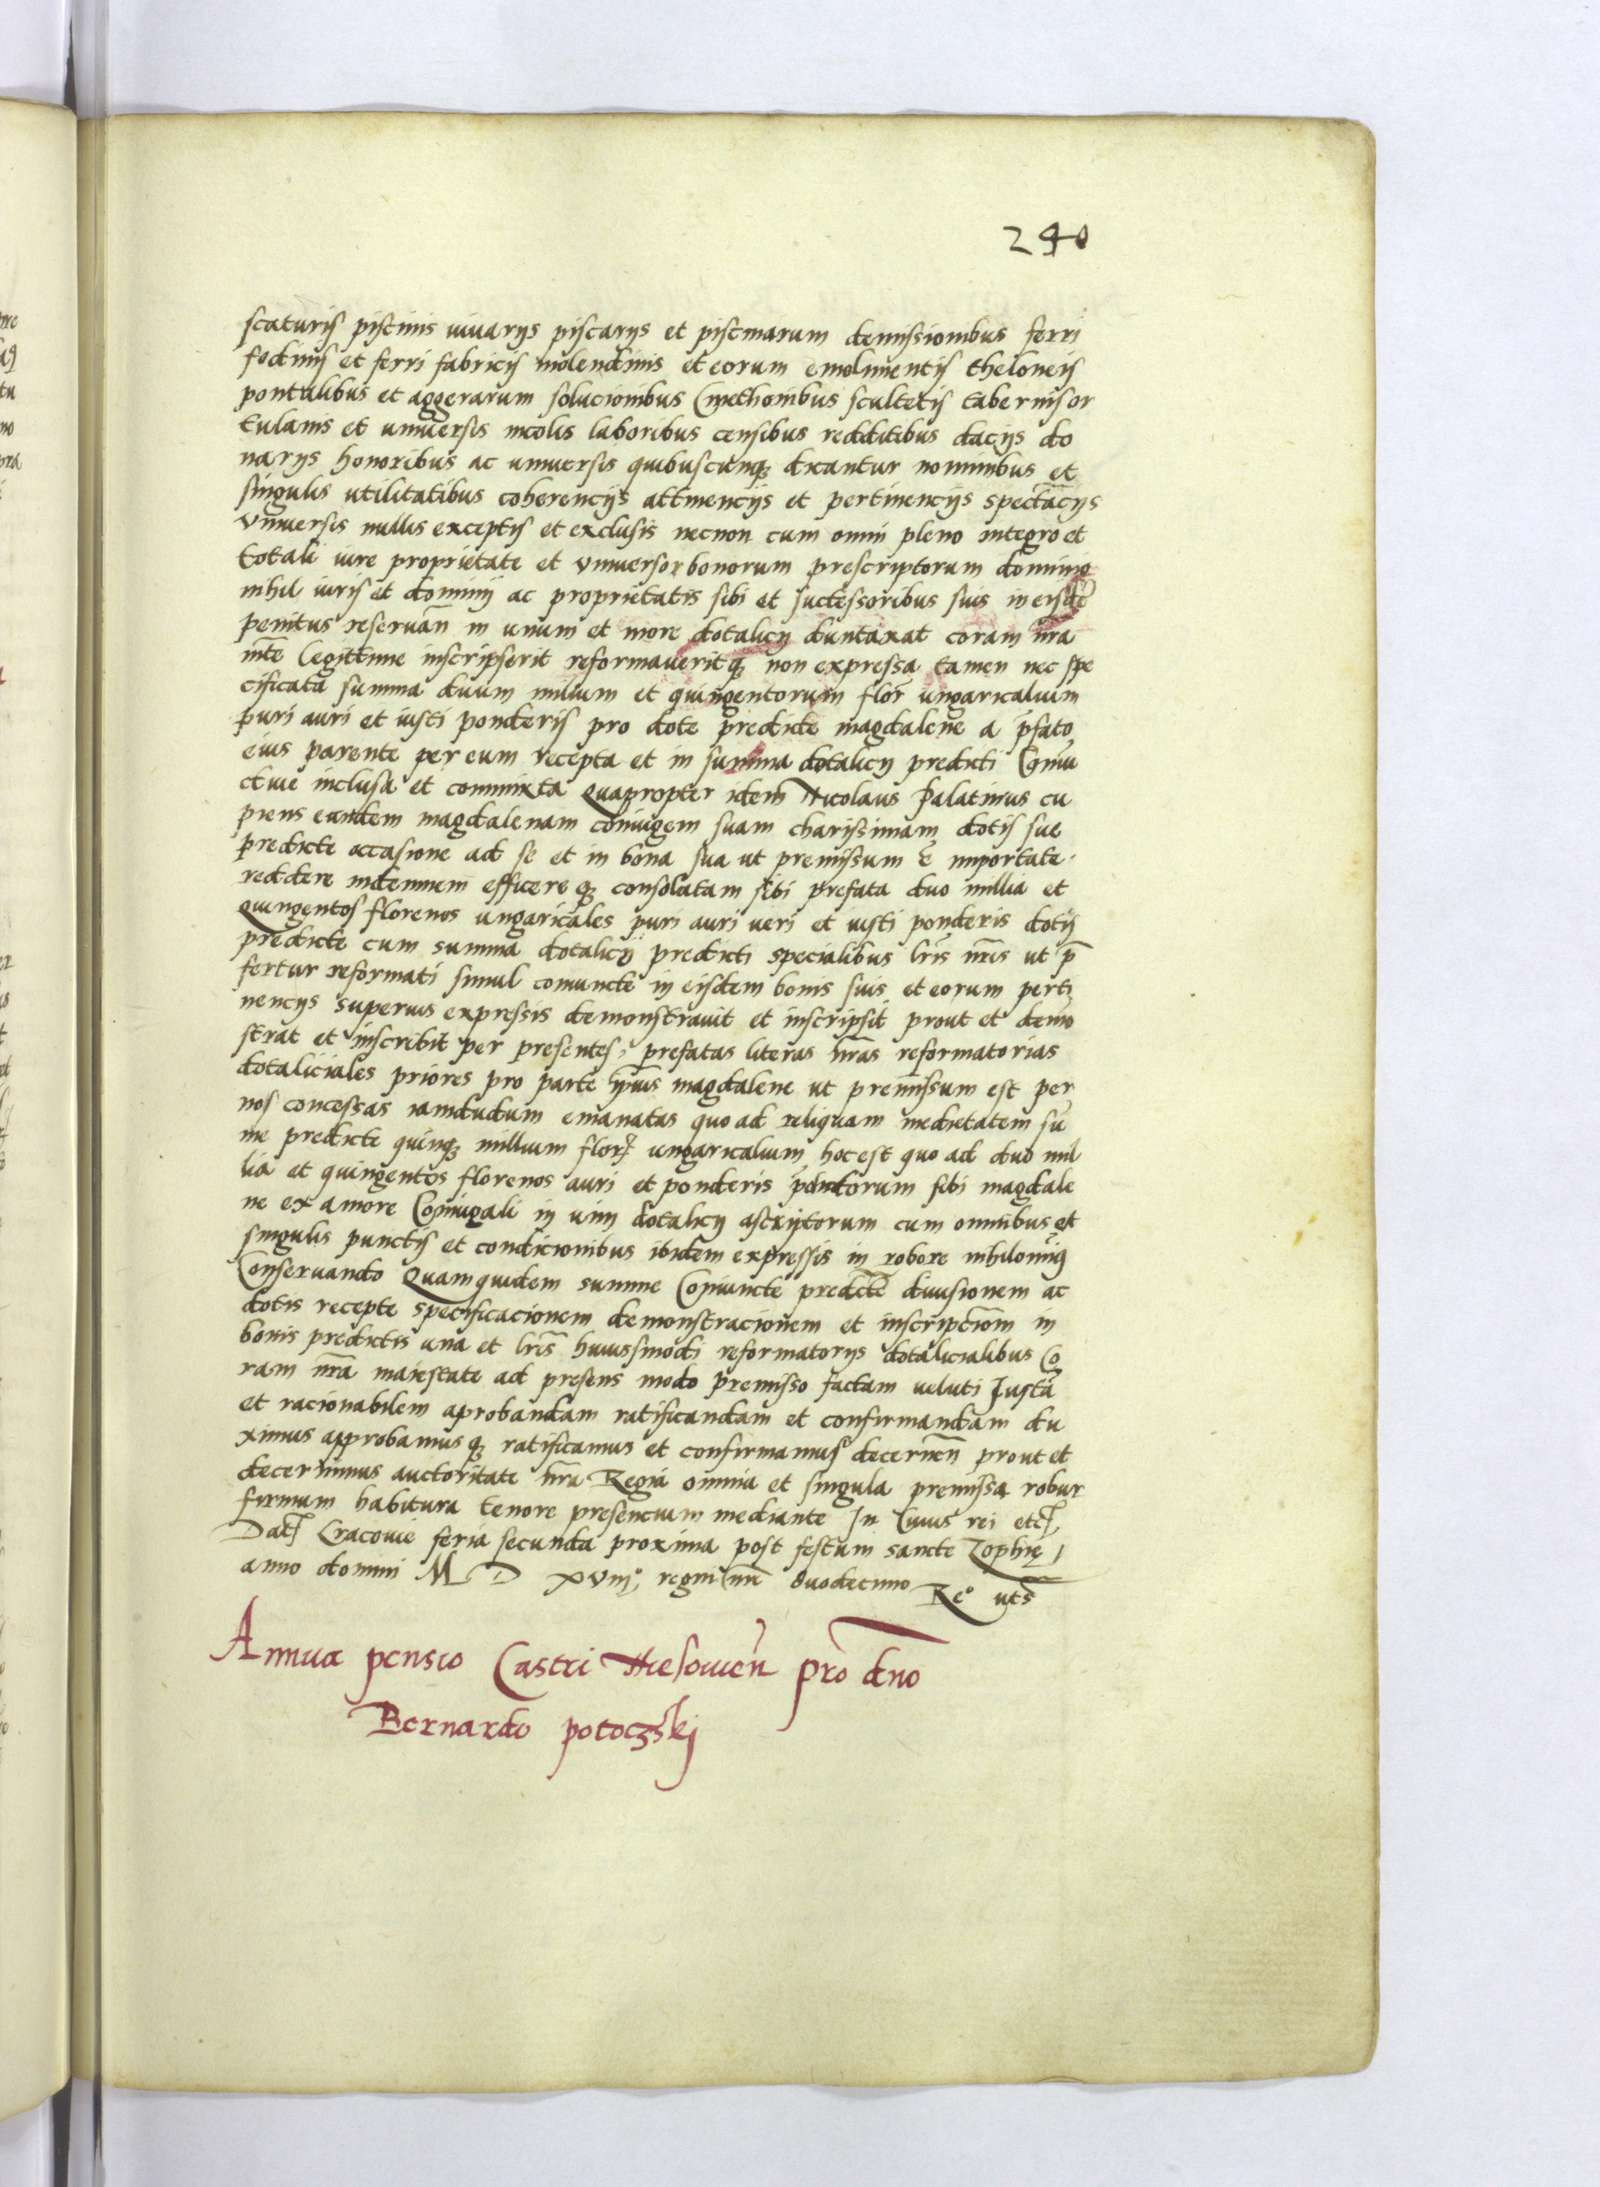 240
scaturis piscinis vivarijs piscarijs et piscinarum demissionibus ferri
fodinis et ferri fabricis molendinis et eorum emolimentis theloneis
pontalibus et aggerarum solucionibus Cmethonibus scultetis tabernis or
tulanis et universis incolis laboribus censibus redditibus dacijs do
narijs honoribus ac universis quibuscunq3 dicantur nominibus et
singulis utilitatibus coherencijs attinencijs et pertinencijs spectacijs
Universis nullis exceptis et exclusis necnon cum omni pleno integro et
totali iure proprietate et universor bonorum prescriptorum dominio
nihil iuris et dominij ac proprietatis sibi et successoribus suis in eisdē
penitus reservan̄ in unum et more dotalicij duntaxat coram nr̄a
mt̄e legittime inscripserit reformaveritq3 non expressa tamen nec spe
cificata summa duum milium et quingentorum flor̄ ungaricalium
puri auri et iusti ponderis pro dote predicte magdalene a p̄fato
eius parente per eum recepta et in summa dotalicij predicti Coniu
ctive inclusa et commixta Quapropter idem Nicolaus Palatinus cu
piens eandem magdalenam coniugem suam charissimam dotis sue
predicte occasione ad se et in bona sua ut premissum ē importate
reddere indemnem efficereq3 consolatam sibi prefata duo millia et
Quingentos florenos ungaricales puri auri veri et iusti ponderis dotis
predicte cum summa dotalicij predicti specialibus lr̄is nr̄is ut p̄
fertur reformati simul coniuncte in eisdem bonis suis et eorum perti
nencijs superius expressis demonstravit et inscripsit prout et demō
strat et inscribit per presentes, prefatas literas nr̄as reformatorias
dotaliciales priores pro parte ip̄ius magdalene ut premissum est per
nos concessas iamdudum emanatas quo ad reliquam medietatem sū
me predicte quinq3 millium flor̄ ungaricalium hoc est quo ad duo mil
lia et quingentos florenos auri et ponderis p̄dictorum sibi magdale
ne ex amore Coniugali in vim dotalicij ascriptorum cum omnibus et
singulis punctis et condicionibus ibidem expressis in robore nihilomīq3
Conservando Quamquidem summe Coniuncte predicte divisionem ac
dotis recepte specificacionem demonstracionem et inscriptiōm in
bonis predictis una et lr̄is huiusmodi reformatorijs dotalicialibus Co
ram nr̄a maiestate ad presens modo premisso factam veluti Iustā
et racionabilem aprobandam ratificandam et confirmandam du
ximus approbamusq3 ratificamus et confirmamus decernen̄ prout et
decernimus auctoritate nr̄a Regia omnia et singula premissa robur
firmum habitura tenore presencium mediante In Cuius rei etc
Dat Cracovie feria secunda proxima post festum sancte Zophię
anno domini M D XVIII, regni nr̄i duodecimo
Reº ut s̄
Annua pensio Castri Nie​soloviēn pro dn̄o
Bernardo potoczskj